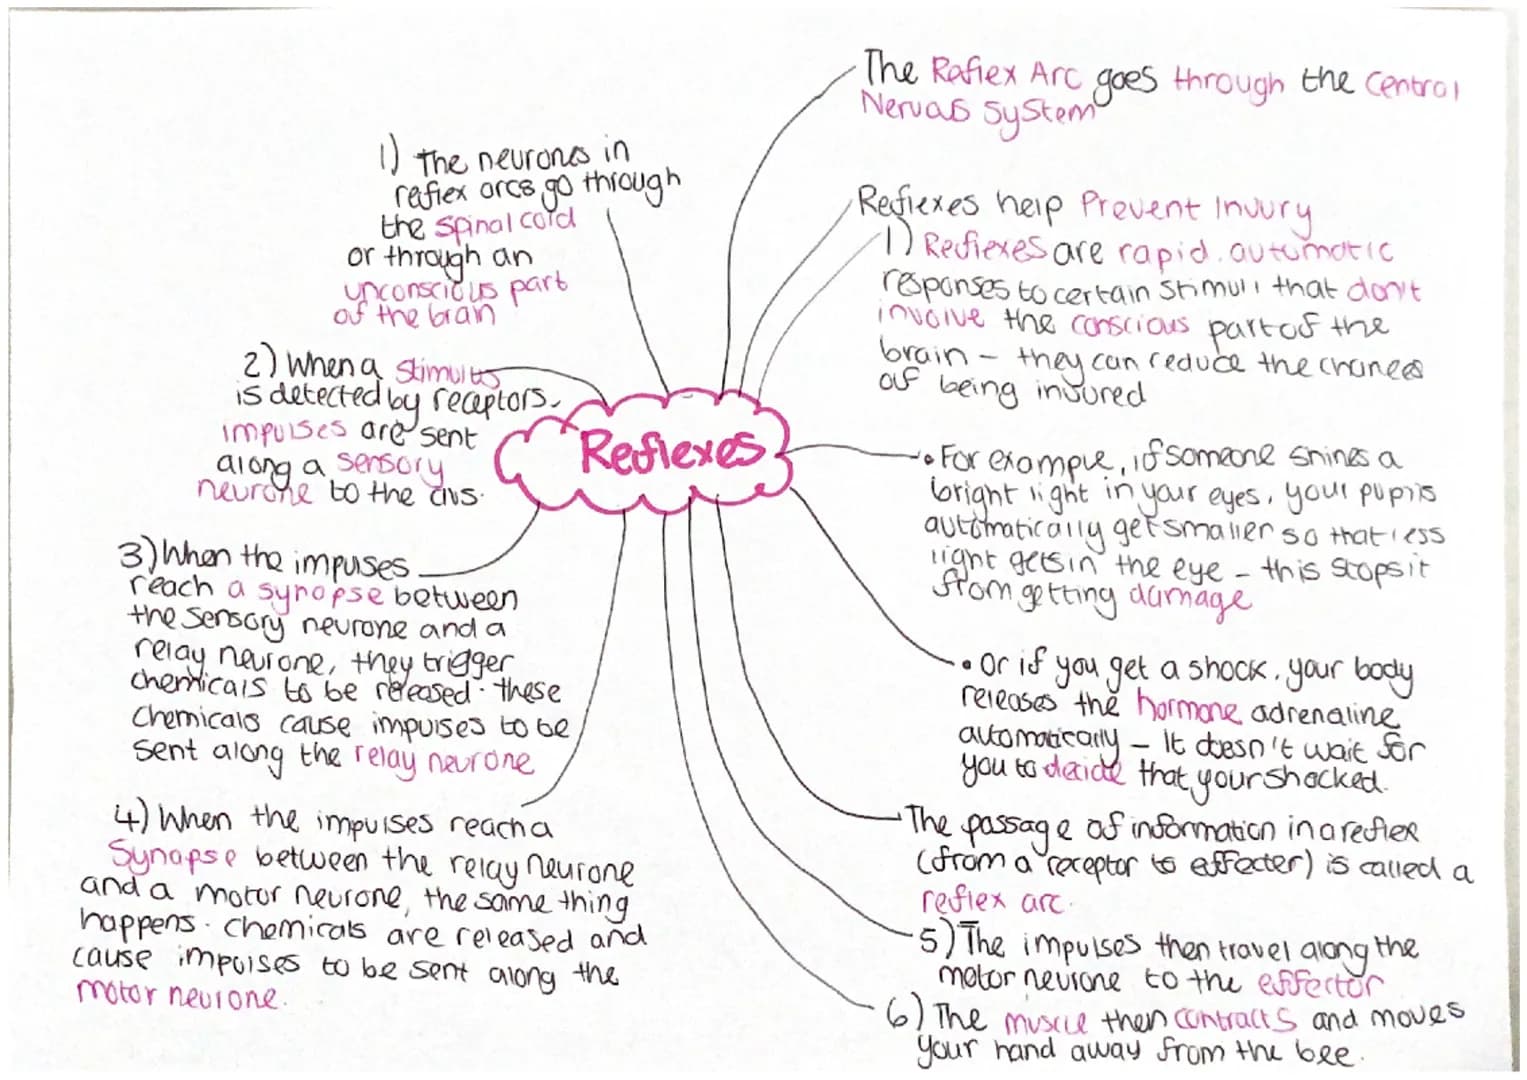 Reflexes
The Reflex Arc goes through the Central
Nervous System
Reflexes help Prevent Injury
1) Reflexes are rapid. automatic
responses to certain stimuli that don't
involve the conscious part of the
brain - they can reduce the chances
of being injured
• For example, if someone shines a
bright light in your eyes, your pupils
automatically get smaller so that less
light gets in the eye - this stops it
from getting damage
• Or if you get a shock, your body
releases the hormone adrenaline
automatically - It doesn't wait for
you to decide that your shocked.
The passage of information in a reflex
(from a receptor to effecter) is called a
reflex arc.
1) The neurones in
reflex arcs go through
the spinal cord
or through an
unconscious part
of the brain
2) When a stimulus
is detected by receptors,
impulses are sent
along a sensory
neurone to the CNS.
3) When the impuses
reach a synapse between
the sensory neurone and a
relay neurone, they trigger
chemicals to be released. these
chemicals cause impulses to be
sent along the relay neurone
4) When the impulses reach a
Synapse between the relay neurone
and a motor neurone, the same thing
happens. chemicals are released and
cause impulses to be sent along the
motor neurone.
5) The impulses then travel along the
motor neurone to the effector
6) The muscle then contracts and moves
your hand away from the bee.